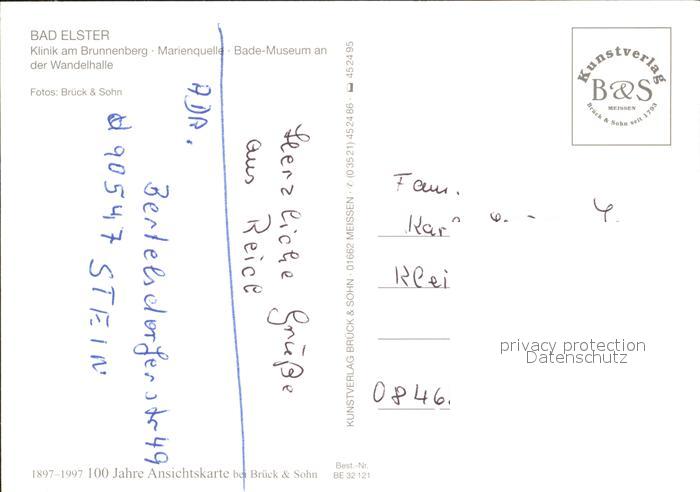 BAD ELSTER
Klinik am Brunnenberg · Marienquelle · Bade-Museum an
der Wandelhalle
Fotos: Brück & Sohn
Herzliche Grüße
aus
ADR.
Bertelsdorfer str 49
90547 STEIN
1897–1997 100 Jahre Ansichtskarte bei Brück & Sohn
Best.-Nr.
BE 32 121
KUNSTVERLAG BRÜCK & SOHN · 01662 MEISSEN · (0 35 21) 45 24 86 · 45 24 95
Kunstverlag
B&S
MEISSEN
Brück & Sohn seit 1793
Fam.
Kar
Klei
0846.
privacy protection
Datenschutz